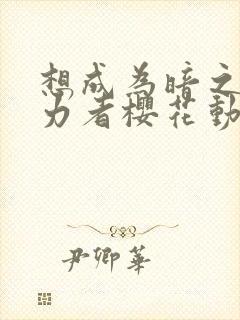 想成为暗之
力者樱花動
尹卿華